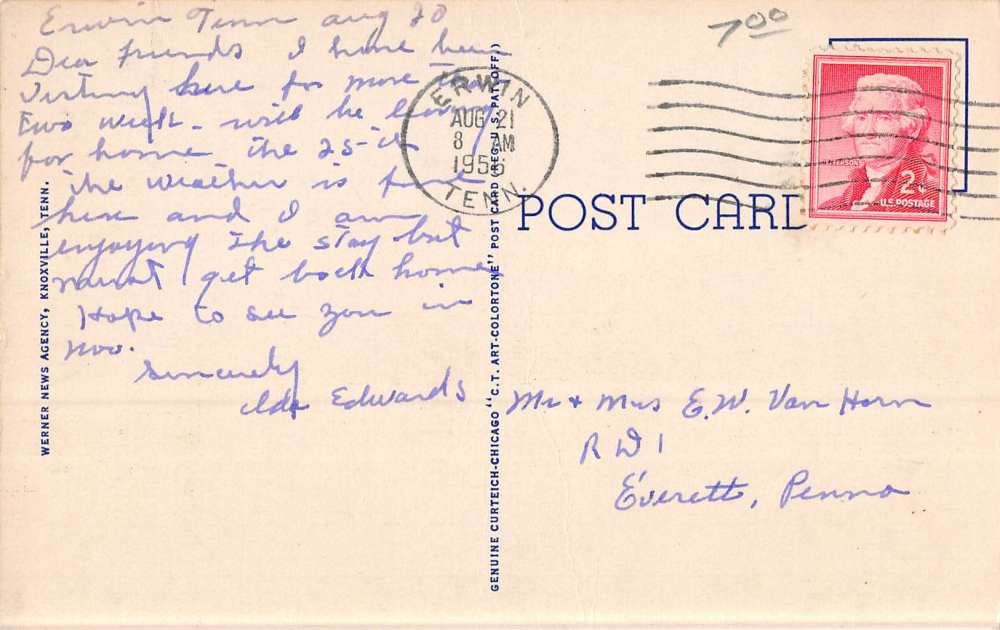 Erwin Tenn Aug 20
Dear friends I have been
visiting here for more than
two week - will be leaving
for home the 25-th
The weather is fine
here and I am
enjoying the stay but
must get back home
Hope to see you in
Nov.
Sincerely
Ida Edwards
WERNER NEWS AGENCY, KNOXVILLE, TENN.
GENUINE CURTEICH-CHICAGO "C.T. ART-COLORTONE" POST CARD (REG. U.S. PAT. OFF.)
7.00
ERWIN
AUG 21
8 AM
TENN.
POST CARD
JEFFERSON
2¢
U.S. POSTAGE
Mr + Mrs E.W. Van Horn
R D 1
Everett, Penna